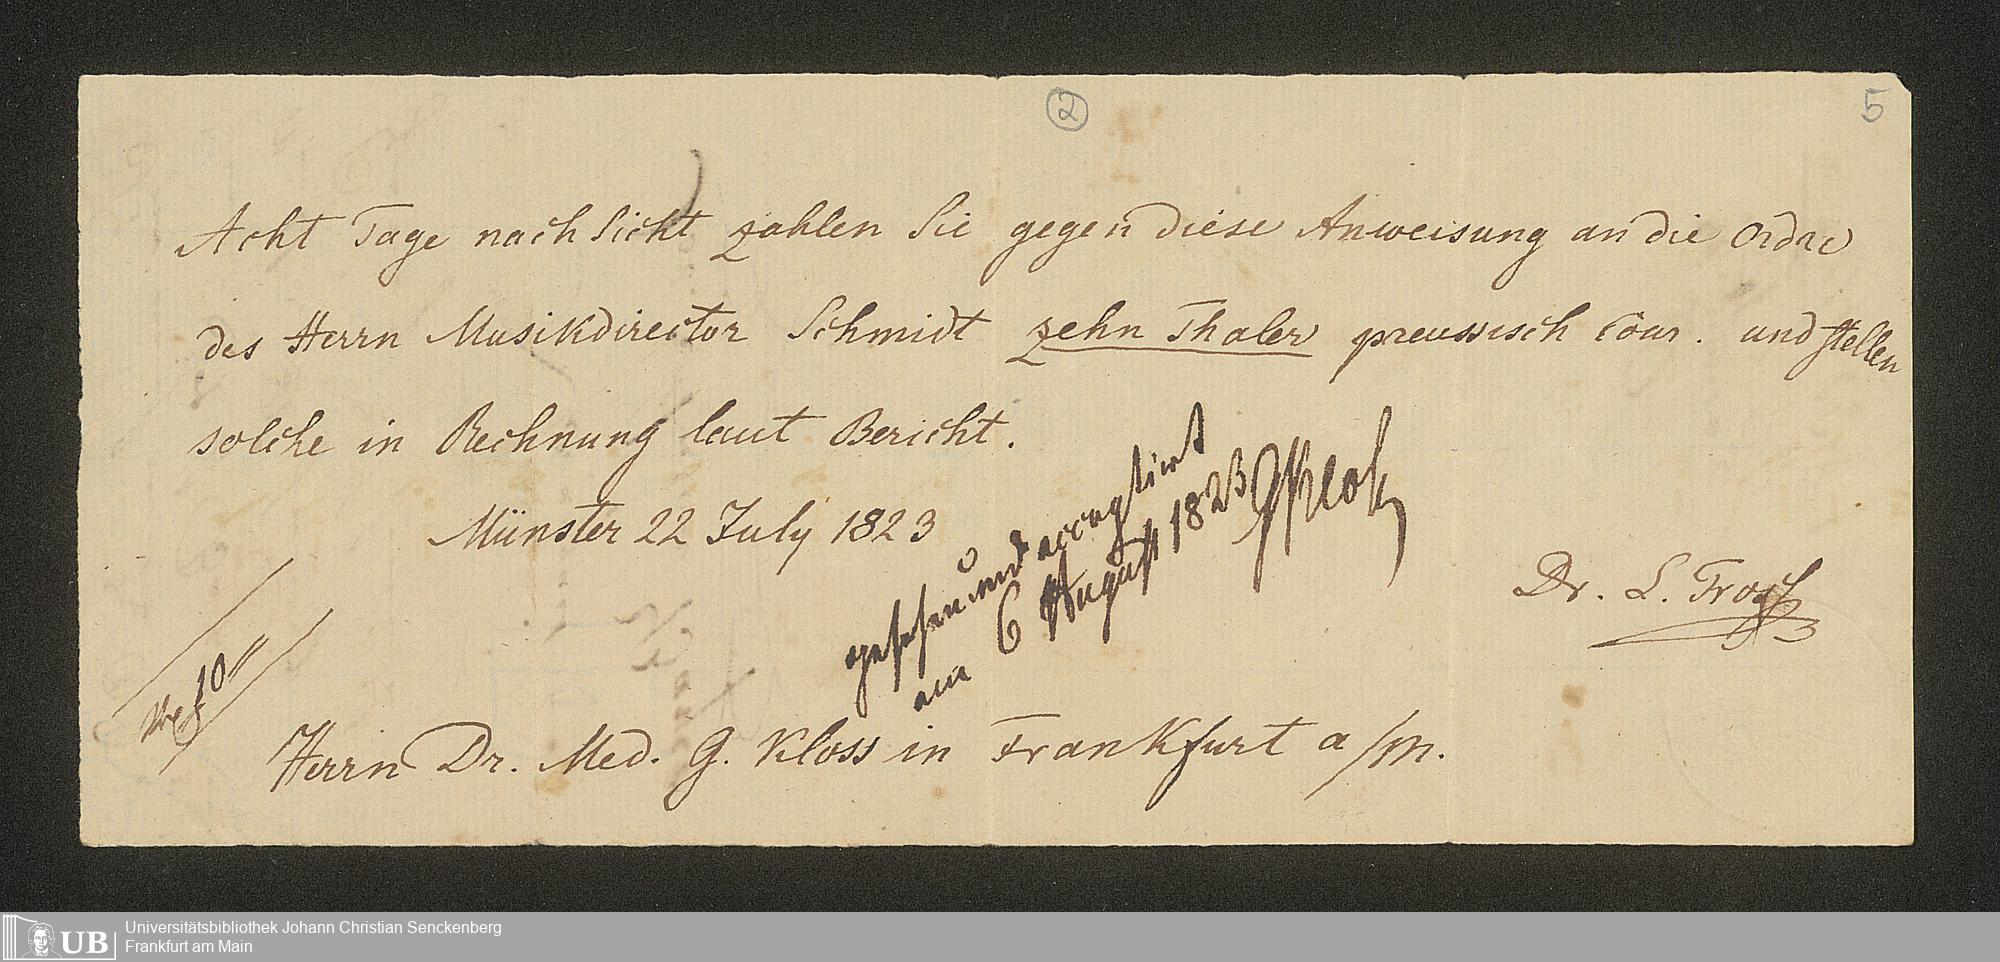 2
5
Acht Tage nach Sicht zahlen Sie gegen diese Anweisung an die Ordre
des Herrn Musikdirector Schmidt zehn Thaler preussisch Cour. und stellen
solche in Rechnung laut Bericht.
Münster 22 July 1823
gesehen und acceptiert
am 6 August 1823 GKloß
Dr. L. Trosß
10
Herrn Dr. Med. G. Kloss in Frankfurt a/m.
UB
Universitätsbibliothek Johann Christian Senckenberg
Frankfurt am Main